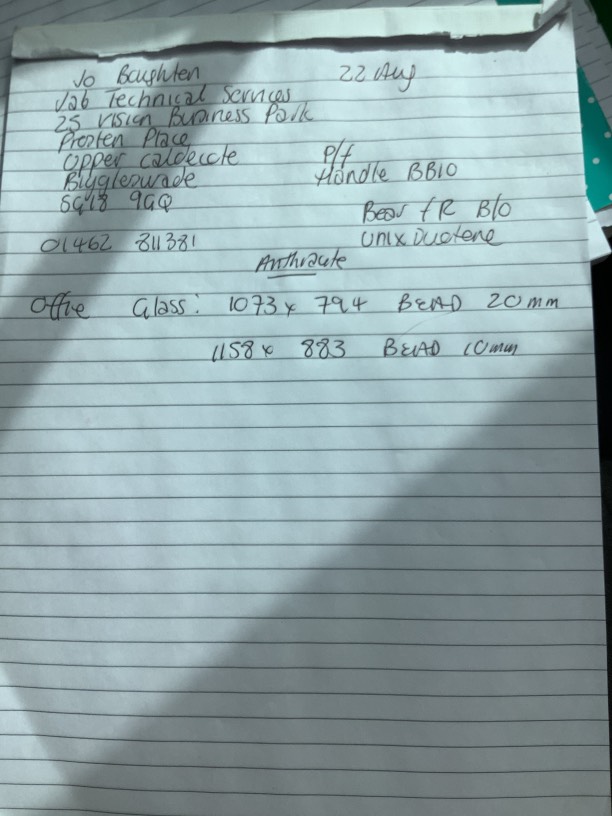 Jo Boughten 22 Aug
Jab Technical Services
25 Vision Business Park
Place
Upper Caldecote
Biggleswade
SG18 9GQ
P/f
Handle BB10
01462 811381
B/O
Anthracite
Office Glass: 1073 x 794 BEAD 20mm
1158 x 883 BEAD 10mm